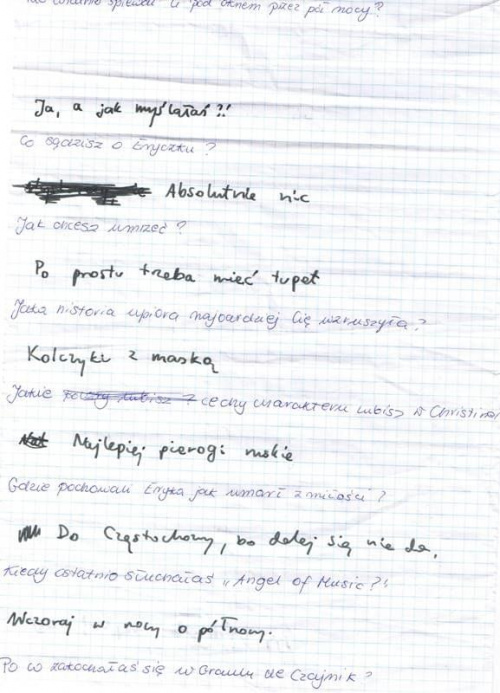 śpiewał Ci pod oknem przez pół nocy?
Ja, a jak myślałaś?!
Co sądzisz o Eryczku?
Absolutnie nic
Jak chcesz umrzeć?
Po prostu trzeba mieć tupet
Jaka historia upiora najbardziej Cię wzruszyła?
Kolczyki z maską
Jakie cechy charakteru lubisz w Christine
Najlepiej pierogi ruskie
Gdzie pochowali Eryka jak umarł z miłości?
Do Częstochowy, bo dalej się nie da.
Kiedy ostatnio słuchałaś „Angel of Music"?
Wczoraj w nocy o północy.
Po co zakochałaś się w de Czajnik?